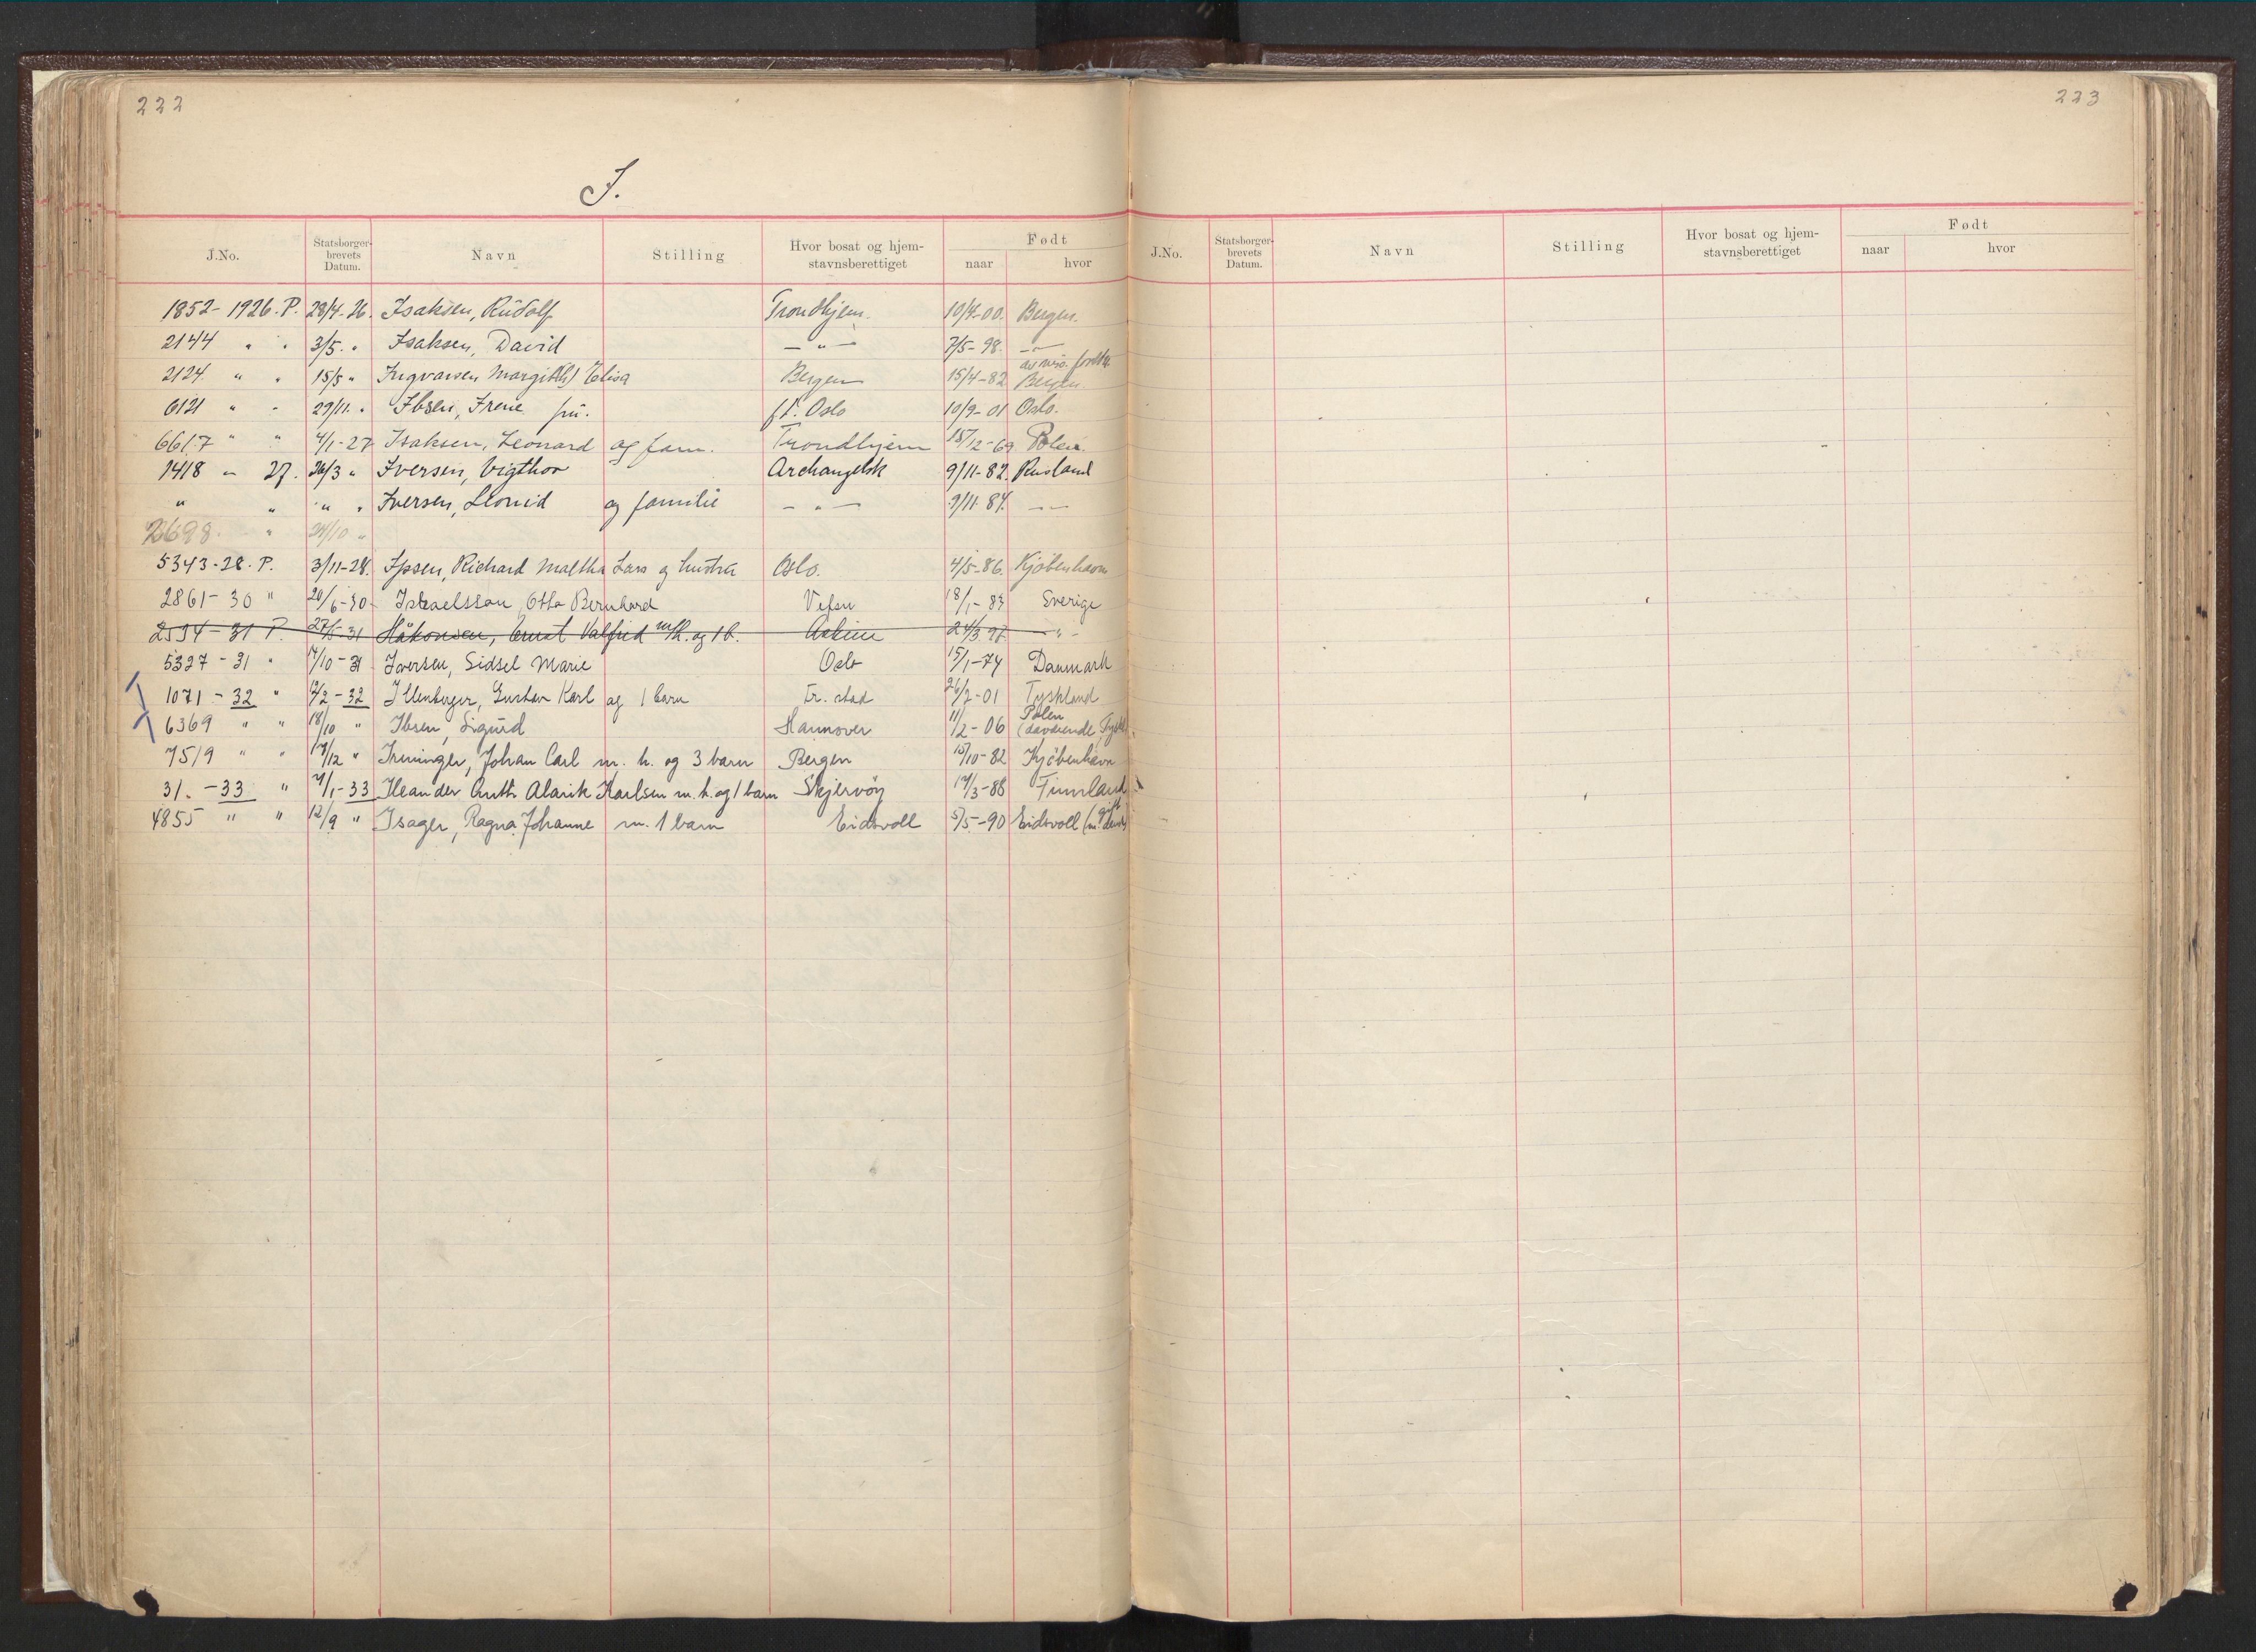 222
223
I.
J.No. Statsborger-brevets Datum. Navn Stilling Hvor bosat og hjem-stavnsberettiget Født naar hvor
J.No. Statsborger-brevets Datum. Navn Stilling Hvor bosat og hjem-stavnsberettiget Født naar hvor
1852-1926. P. 28/4-26. Isaksen, Rudolf Trondhjem. 10/4-00. Bergen.
2144 " " 3/5. " Isaksen, David — " — 7/5-98. — " —
2124. " " 15/5 " Ingvarsen Margit Elisa Bergen 15/4-82 Bergen
6121 " " 29/11. " Ibsen, Irene fru. f.t. Oslo 10/9-01 Oslo.
6617 " " 4/1-27 Isaksen, Leonard og fam. Trondhjem 15/12-69 Polen.
1418 " 27. 26/3 " Iversen, Vigthor Archangelsk 9/11-82. Rusland
" " " " Iversen, Leonid og familie — " — 9/11-84. — " —
2698. " 24/10 "
5343-28. P. 3/11-28. Ipsen, Richard Malthe Lars og hustru Oslo. 4/5-86. Kjøbenhavn
2861-30 " 20/6-30 Israelsson, Otto Bernhard Vefsn 18/1-83 Sverige
2594-31 P. 27/5-31 Håkonsen, Ernst Valfrid m/h. og 1 b. Askim 24/3 97 — " —
5327-31 " 17/10-31 Iversen, Sidsel Marie Oslo 15/1-74 Danmark
1071-32 " 12/2-32 Illenberger, Gustav Karl og 1 barn Fr. stad 26/2-01 Tyskland
6369 " " 18/10 " Ibsen, Sigurd Hannover 11/2-06 Polen (daværende Tyskl.)
7519 " " 17/12 " Irminger, Johan Carl m. h. og 3 barn Bergen 15/10-82 Kjøbenhavn
31. -33 " 7/1-33 Ileander Antti Alarik Karlsen m. h. og 1 barn Skjervøy 17/3-88 Finnland
4855 " " 12/9 " Isager, Ragna Johanne m. 1 barn Eidsvoll 5/5-90 Eidsvoll (gift m. dansk)